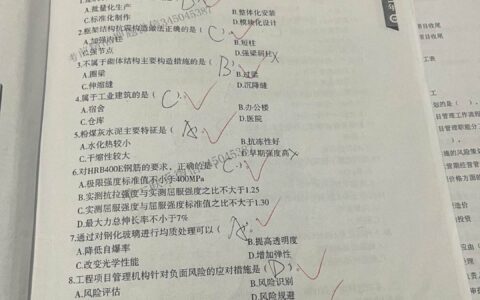 A.批量化生产 B.整体化安装
C.标准化制作 D.模块化设计
2.框架结构抗震构造做法正确的是( C )。
A.加强内柱 B.短柱
C.强节点 D.强梁弱柱
3.不属于砌体结构主要构造措施的是( B )。
A.圈梁 B.过梁
C.伸缩缝 D.沉降缝
4.属于工业建筑的是( C )。
A.宿舍 B.办公楼
C.仓库 D.医院
5.粉煤灰水泥主要特征是( A )。
A.水化热较小 B.抗冻性好
C.干缩性较大 D.早期强度高
6.对HRB400E钢筋的要求,正确的是( C )。
A.极限强度标准值不小于400MPa
B.实测抗拉强度与实测屈服强度之比不大于1.25
C.实测屈服强度与屈服强度标准值之比不大于1.30
D.最大力总伸长率不小于7%
7.通过对钢化玻璃进行均质处理可以( A )。
A.降低自爆率 B.提高透明度
C.改变光学性能 D.增加弹性
8.工程项目管理机构针对负面风险的应对措施是( D )。
A.风险评估 B.风险识别
D.风险规避
目收尾
项目收尾
工表
划的是( ),
目管理工作流程
目管理职能分
的风险策
价格方面的
造价
投资